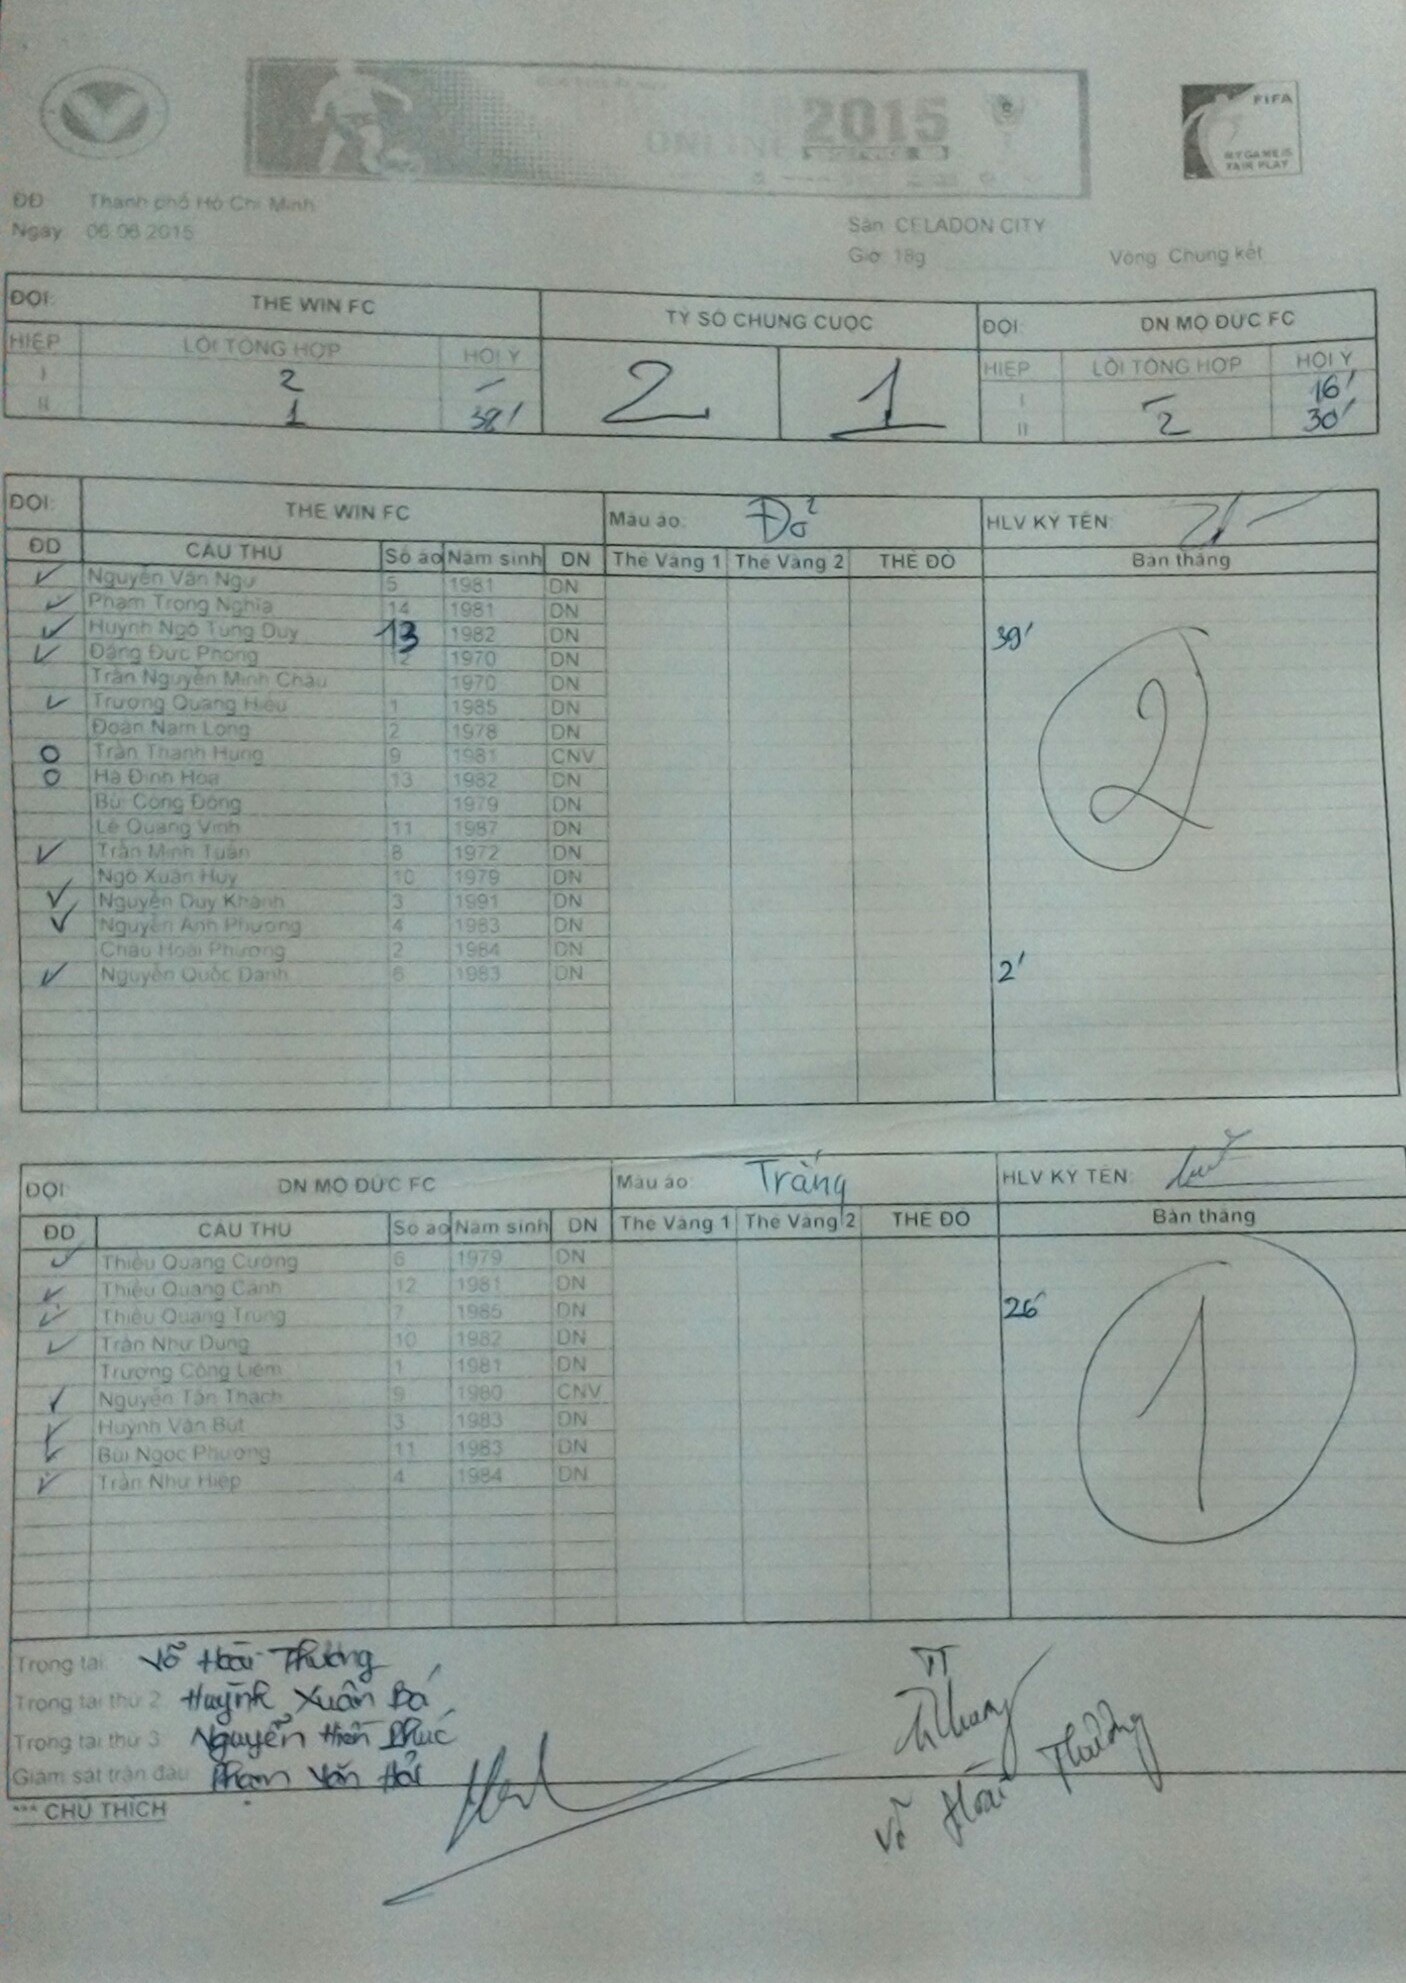 ONLINE 2015
FIFA
MY GAME IS
FAIR PLAY
ĐĐ Thành phố Hồ Chí Minh
Ngày 06.06.2015
Sân CELADON CITY
Giờ 18g Vòng Chung kết
ĐỘI: THE WIN FC TỶ SỐ CHUNG CUỘC ĐỘI DN MỘ ĐỨC FC
HIỆP LỖI TỔNG HỢP HỘI Ý 2 1 HIỆP LỖI TỔNG HỢP HỘI Ý
I 2 - I - 16'
II 1 38' II 2 30'
ĐỘI: THE WIN FC Màu áo: Đỏ HLV KÝ TÊN:
ĐD CẦU THỦ Số áo Năm sinh DN Thẻ Vàng 1 Thẻ Vàng 2 THẺ ĐỎ Bàn thắng
✓ Nguyễn Văn Ngự 5 1981 DN
✓ Phạm Trọng Nghĩa 14 1981 DN
✓ Huỳnh Ngô Tùng Duy 13 1982 DN 39'
✓ Đặng Đức Phong 12 1970 DN
Trần Nguyễn Minh Châu 1970 DN
✓ Trương Quang Hiếu 1 1985 DN
Đoàn Nam Long 2 1978 DN
O Trần Thanh Hùng 9 1981 CNV
O Hà Đình Hòa 13 1982 DN
Bùi Công Đồng 1979 DN
Lê Quang Vinh 11 1987 DN
✓ Trần Minh Tuấn 8 1972 DN
Ngô Xuân Huy 10 1979 DN
✓ Nguyễn Duy Khánh 3 1991 DN
✓ Nguyễn Anh Phương 4 1983 DN
Châu Hoài Phương 2 1984 DN
✓ Nguyễn Quốc Danh 6 1983 DN 2'
2
ĐỘI DN MỘ ĐỨC FC Màu áo: Trắng HLV KÝ TÊN:
ĐD CẦU THỦ Số áo Năm sinh DN Thẻ Vàng 1 Thẻ Vàng 2 THẺ ĐỎ Bàn thắng
✓ Thiều Quang Cường 6 1979 DN
✓ Thiều Quang Cảnh 12 1981 DN
✓ Thiều Quang Trung 7 1985 DN 26'
✓ Trần Như Dũng 10 1982 DN
Trương Công Liêm 1 1981 DN
✓ Nguyễn Tấn Thạch 9 1980 CNV
✓ Huỳnh Văn Bút 3 1983 DN
✓ Bùi Ngọc Phương 11 1983 DN
✓ Trần Như Hiệp 4 1984 DN
1
Trọng tài: Võ Hoài Thương
Trọng tài thứ 2: Huỳnh Xuân Bá
Trọng tài thứ 3: Nguyễn Hiền Phúc
Giám sát trận đấu: Phạm Văn Hải
TT
Võ Hoài Thương
*** CHÚ THÍCH